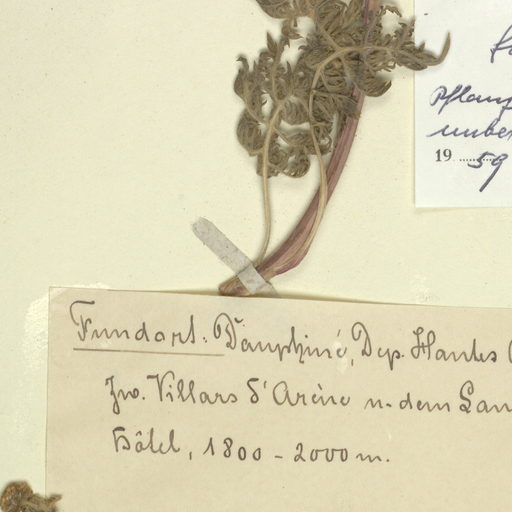 Pflanz
unbe
19 59
Fundort. Dauphiné, Dep. Hautes
Zw. Villars d'Arène u. dem Lau
Hôtel, 1800 - 2000 m.